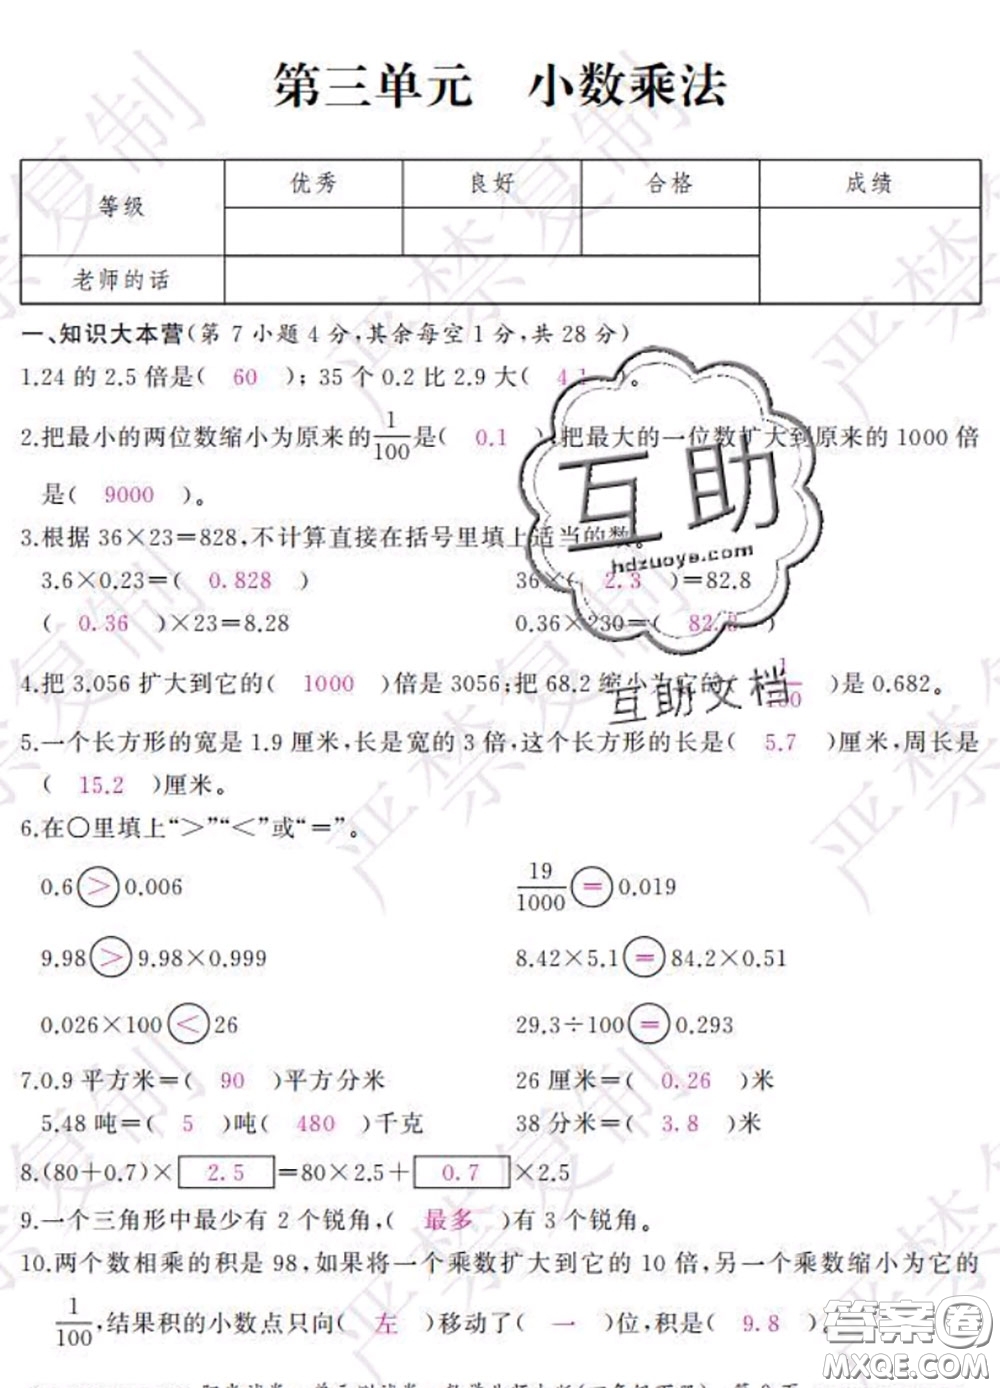 第三单元 小数乘法
等级 优秀 良好 合格 成绩
老师的话
一、知识大本营(第7小题4分,其余每空1分,共28分)
1.24的2.5倍是( 60 );35个0.2比2.9大( 4.1 )。
2.把最小的两位数缩小为原来的1/100是( 0.1 );把最大的一位数扩大到原来的1000倍
是( 9000 )。
3.根据36×23=828,不计算直接在括号里填上适当的数。
3.6×0.23=( 0.828 ) 36×( 2.3 )=82.8
( 0.36 )×23=8.28 0.36×230=( 82.8 )
4.把3.056扩大到它的( 1000 )倍是3056;把68.2缩小为它的( 1/100 )是0.682。
5.一个长方形的宽是1.9厘米,长是宽的3倍,这个长方形的长是( 5.7 )厘米,周长是
( 15.2 )厘米。
6.在○里填上“>”“<”或“=”。
0.6 > 0.006 19/1000 = 0.019
9.98 > 9.98×0.999 8.42×5.1 = 84.2×0.51
0.026×100 < 26 29.3÷100 = 0.293
7.0.9平方米=( 90 )平方分米 26厘米=( 0.26 )米
5.48吨=( 5 )吨( 480 )千克 38分米=( 3.8 )米
8.(80+0.7)× 2.5 =80×2.5+ 0.7 ×2.5
9.一个三角形中最少有2个锐角,( 最多 )有3个锐角。
10.两个数相乘的积是98,如果将一个乘数扩大到它的10倍,另一个乘数缩小为它的
1/100,结果积的小数点只向( 左 )移动了( 一 )位,积是( 9.8 )。
互助
hdzuoye.com
互助文档
严禁复制
答案圈
MXQE.COM